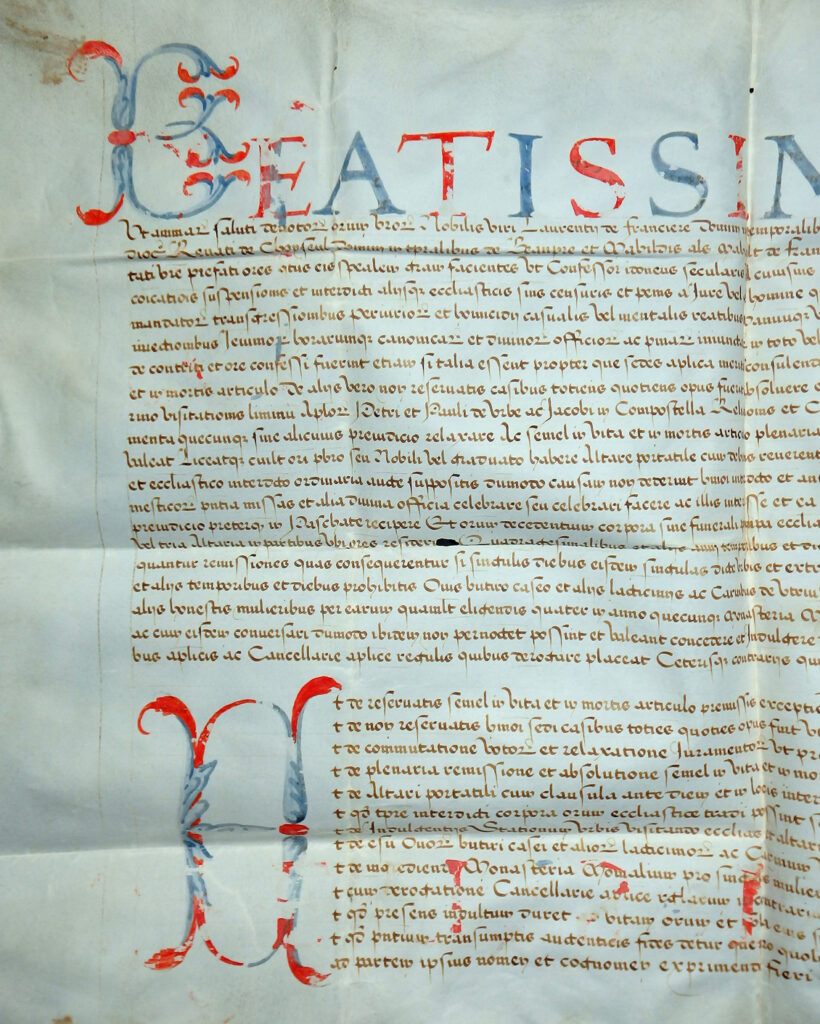 BEATISSIM
Ut animar saluti devotor orum vror Nobilis viri Laurentii de franciere Domini temporalib
dioc Renati de Choyseul Domini in tpralibus de Beaupre et Mabildis als de fran
tati vre prefati ores qtus eis spealem gram facientes vt Confessor idoneus secularis cuiusuis
coicatiois suspensionis et interdicti alijsqr ecclesiasticis sniis censuris et penis a Jure vel homine q
mandator transgressionibus periurior et homicidij casualis vel mentalis reatibus
iniectionibus Jeiunior horarumqr canonicar et diuinor officior ac pniar iniunctar in toto vel
de contriti et ore confessi fuerint etiam si talia essent propter que sedes aplica merito consulend
et in mortis articulo De alijs vero non reseruatis casibus totiens quotiens opus fuerit absoluere e
rino visitationis liminu Aplor Petri et Pauli de Vrbe ac Jacobi in Compostella Relionis et C
menta quecunqr sine alicuius preiudicio relaxare Ac semel in vita et in mortis articlo plenaria
valeat Liceatqr cuilt ori pbro seu Nobili vel graduato habere Altare portatile cum debis reverent
et ecclesiastico interdicto ordinaria aucte suppositis dumodo causam non dederint hmoi interdicto et an
mesticor pntia missas et alia diuina officia celebrare seu celebrari facere ac illis interesse et ea
preiudicio preterqr in Paschate recipere Et orum decedentium corpora sine funerali pompa ecclia
vel tria Altaria in partibus vbi ores Quadragesimalibus et alijs anni temporibus et di
quantur remissiones quas consequerentur si singulis diebus eisdem singulas dicte Vrbis et extr
et alijs temporibus et diebus prohibitis Ouis butiro caseo et alijs lacticinijs ac Carnibus de
alijs honestis mulieribus per earum quamlt eligendis quater in anno quecunqr Monasteria M
ac cum eisdem conuersari dumodo ibidem non pernoctet possint et valeant concedere et Indulgere
bus aplicis ac Cancellarie aplice regulis quibus derogare placeat Ceterisqr contrarijs qui
Et de reseruatis semel in vita et in mortis articulo premissis exceptis
t de non reseruatis hmoi sedi casibus toties quoties opus fuit
t de commutatione votor et relaxatione Juramentor vt pr
t de plenaria remissione et absolutione semel in vita et in mo
t de Altari portatili cum clausula ante diem et in locis inter
t qd tpre interdicti corpora orum ecclesiastice tradi possint s
t de Indulgentijs Stationum Vrbis visitando ecclias et altar
t de esu Ouor butiri casei et alior lacticinior ac Carnium
t de ingrediend Monasteria Monialium pro singulis mulier
t cum derogatione Cancellarie aplice rglarum in contrari
t qd presens indultum duret ad vitam orum et
t qd pntium transumptis autenticis fides detur
ad partem ipsius nomen et cognomen exprimenti fieri